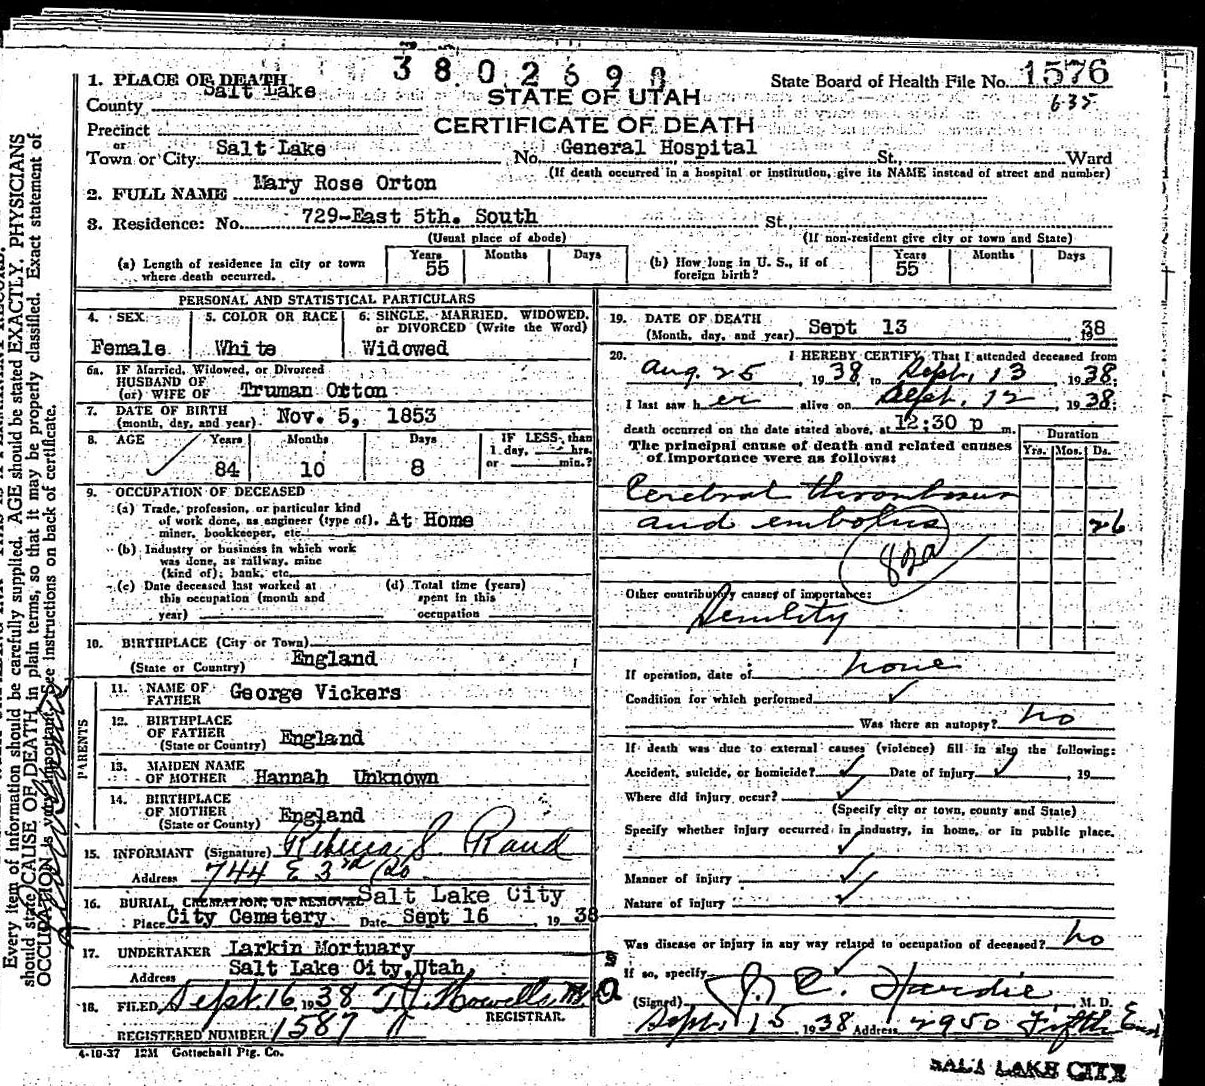 3802690
1. PLACE OF DEATH
State Board of Health File No. 1576
635
County Salt Lake
STATE OF UTAH
Precinct
CERTIFICATE OF DEATH
or
Town or City Salt Lake No. General Hospital St., Ward
(If death occurred in a hospital or institution, give its NAME instead of street and number)
2. FULL NAME Mary Rose Orton
3. Residence: No. 729-East 5th. South St.,
(Usual place of abode) (If non-resident give city or town and State)
(a) Length of residence in city or town where death occurred. Years 55 Months Days
(b) How long in U. S., if of foreign birth? Years 55 Months Days
PERSONAL AND STATISTICAL PARTICULARS
4. SEX 5. COLOR OR RACE 6. SINGLE, MARRIED, WIDOWED, or DIVORCED (Write the Word)
Female White Widowed
6a. IF Married, Widowed, or Divorced
HUSBAND OF
(or) WIFE OF Truman Orton
7. DATE OF BIRTH
(month, day, and year) Nov. 5, 1853
8. AGE Years Months Days IF LESS than
1 day, hrs.
or min.?
84 10 8
9. OCCUPATION OF DECEASED
(a) Trade, profession, or particular kind
of work done, as engineer (type of), At Home
miner, bookkeeper, etc.
(b) Industry or business in which work
was done, as railway, mine
(kind of); bank, etc.
(c) Date deceased last worked at
this occupation (month and
year)
(d) Total time (years)
spent in this
occupation
10. BIRTHPLACE (City or Town)
(State or Country) England
PARENTS
11. NAME OF
FATHER George Vickers
12. BIRTHPLACE
OF FATHER
(State or Country) England
13. MAIDEN NAME
OF MOTHER Hannah Unknown
14. BIRTHPLACE
OF MOTHER
(State or Country) England
15. INFORMANT (Signature) Rebecca S. Rand
Address 744 E 3rd So
16. BURIAL, CREMATION, OR REMOVAL Salt Lake City
Place City Cemetery Date Sept 16 1938
17. UNDERTAKER Larkin Mortuary
Address Salt Lake City, Utah,
18. FILED Sept. 16, 1938 T J Howells M.D.
REGISTRAR.
REGISTERED NUMBER 1587
4-10-37 12M Gottschall Ptg. Co.
19. DATE OF DEATH
(Month, day, and year) Sept 13 1938
20. I HEREBY CERTIFY, That I attended deceased from
Aug. 25, 1938, to Sept. 13 1938;
I last saw her alive on Sept. 12 1938;
death occurred on the date stated above, at 12:30 p m.
The principal cause of death and related causes
of importance were as follows:
Duration
Yrs. Mos. Ds.
Cerebral thrombosis
and embolus 26
82a
Other contributory causes of importance:
Senility
If operation, date of none
Condition for which performed
Was there an autopsy? no
If death was due to external causes (violence) fill in also the following:
Accident, suicide, or homicide? Date of injury , 19
Where did injury occur?
(Specify city or town, county and State)
Specify whether injury occurred in industry, in home, or in public place.
Manner of injury
Nature of injury
Was disease or injury in any way related to occupation of deceased? no
If so, specify
(Signed) J. C. Hardie M. D.
Sept. 15 1938 Address 2950 Fifth East
SALT LAKE CITY
Every item of information should be carefully supplied. AGE should be stated EXACTLY. PHYSICIANS
should state CAUSE OF DEATH in plain terms, so that it may be properly classified. Exact statement of
OCCUPATION is very important. See instructions on back of certificate.